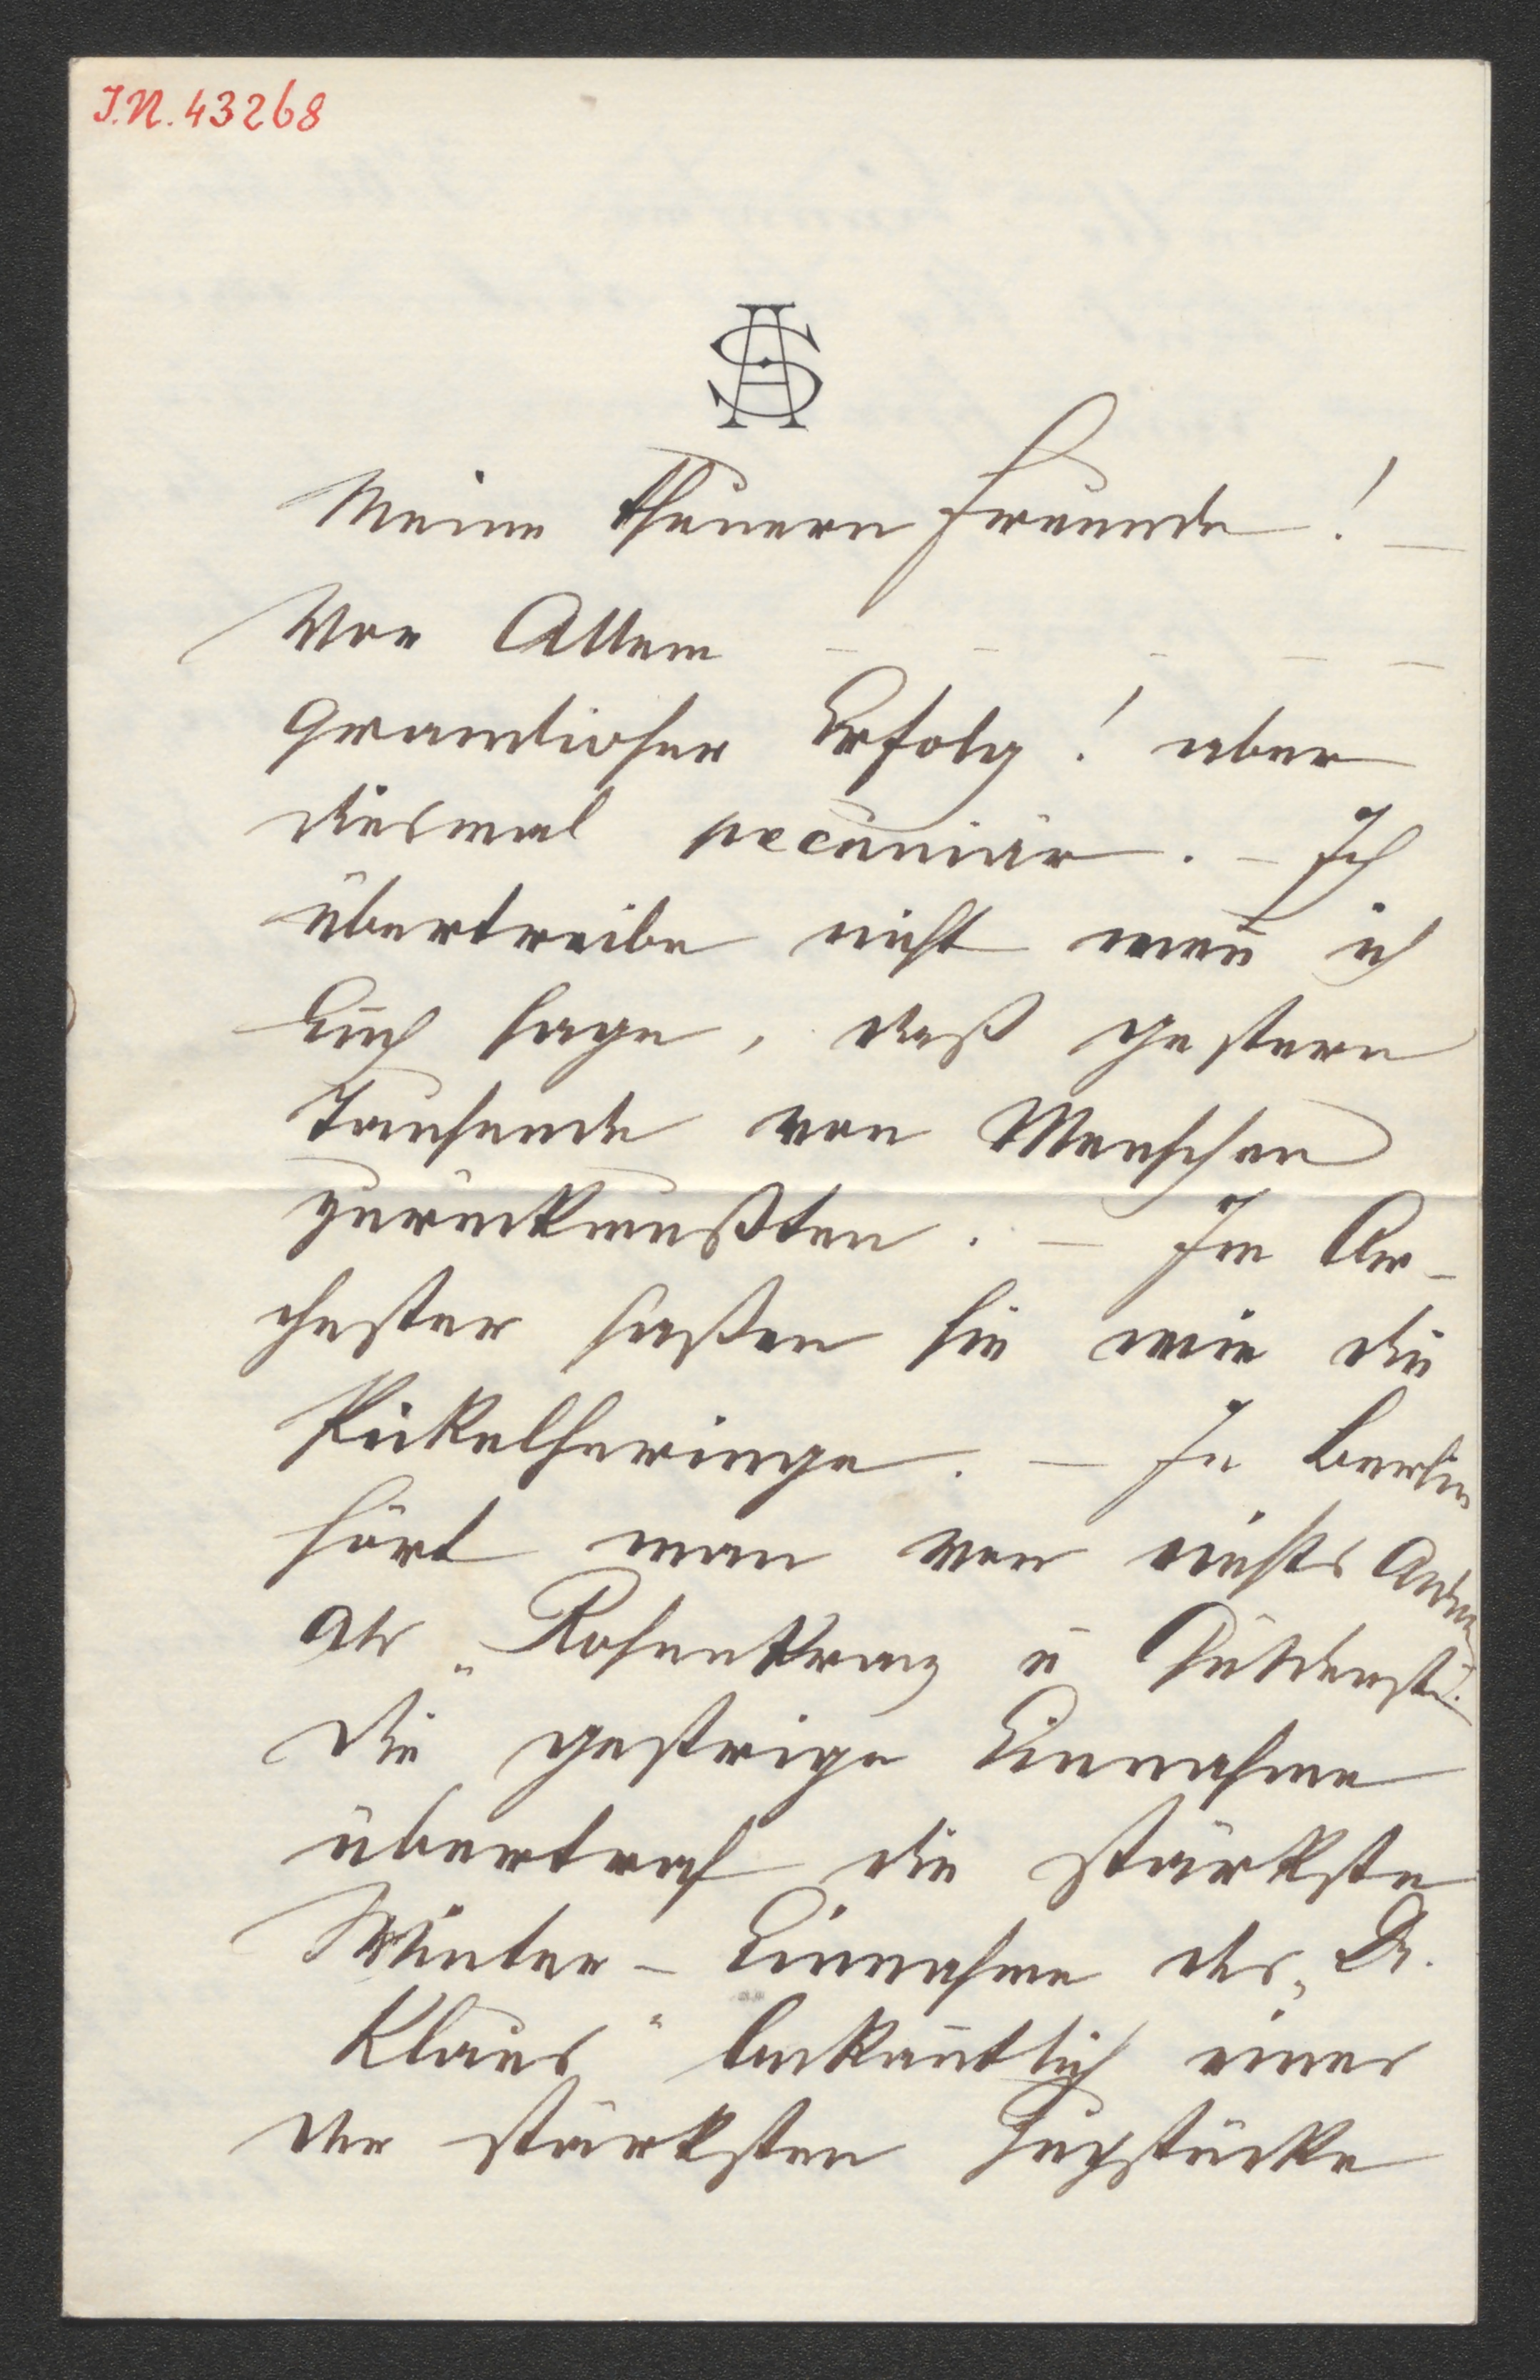 I.N. 43268
AS
Meine theuern Freunde! –
Vor Allem – – – – –
Grandioser Erfolg! aber
diesmal pecuniär. – Ich
übertreibe nicht weñ ich
Euch sage, daß gestern
Tausende von Menschen
zurückmußten. – Im Or-
chester saßen sie wie die
Pickelheringe. – In Berlin
hört man von nichts Andern
als „Rosenkranz u Güldenst.
Die gestrige Einnahme
übertraf die stärkste
Winter-Einnahme des „Dr.
Klaus" bekañtlich eines
der stärksten Zugstücke